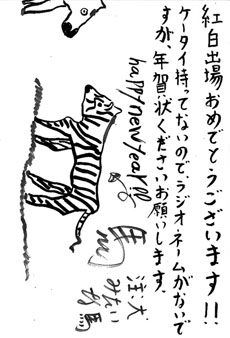 紅白出場おめでとうございます!!
ケータイ持ってないので、ラジオネームがないで
すが、年賀状くださいお願いします。
happy new year!!
馬
注:犬
みたいな馬